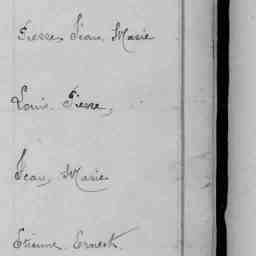 Pierre, Jean, Marie
Louis Pierre,
Jean, Marie
Etienne Ernest.